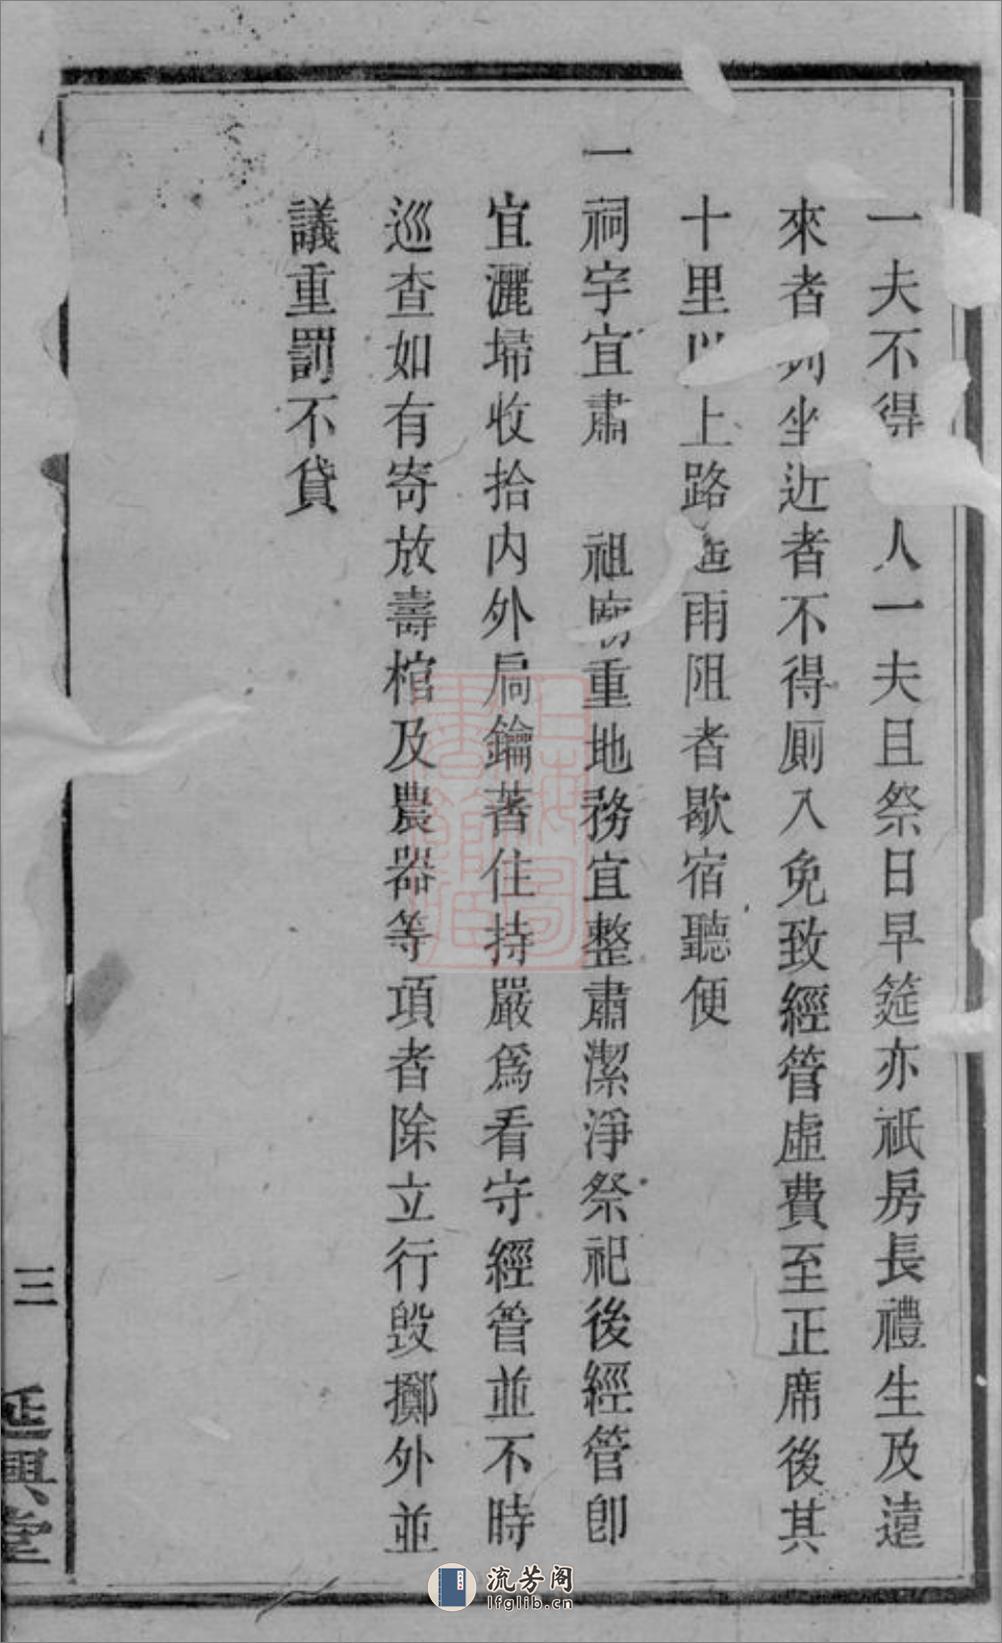 一夫不得人一夫且祭日早筵亦祇房長禮生及遠
來者列坐近者不得厠入免致經管虛費至正席後其
十里以上路遙雨阻者歇宿聽便
一祠宇宜肅　祖廟重地務宜整肅潔淨祭祀後經管卽
宜灑埽收拾內外扃鑰著住持嚴爲看守經管並不時
巡查如有寄放壽棺及農器等項者除立行毀擲外並
議重罰不貸
三
延興堂
流芳阁
lfglib.cn